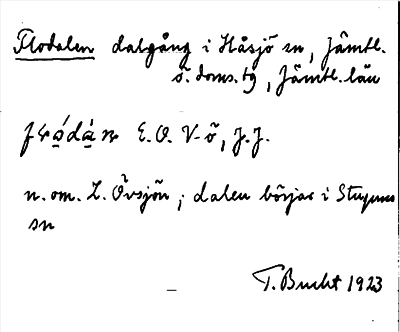 Flodalen dalgång i Håsjö sn, Jämtl.
ö. doms. tg, Jämtl. län
E. O. V-ö, J. J.
n. om. L. Övsjön; dalen börjar i Stuguns
sn
T. Bucht 1923